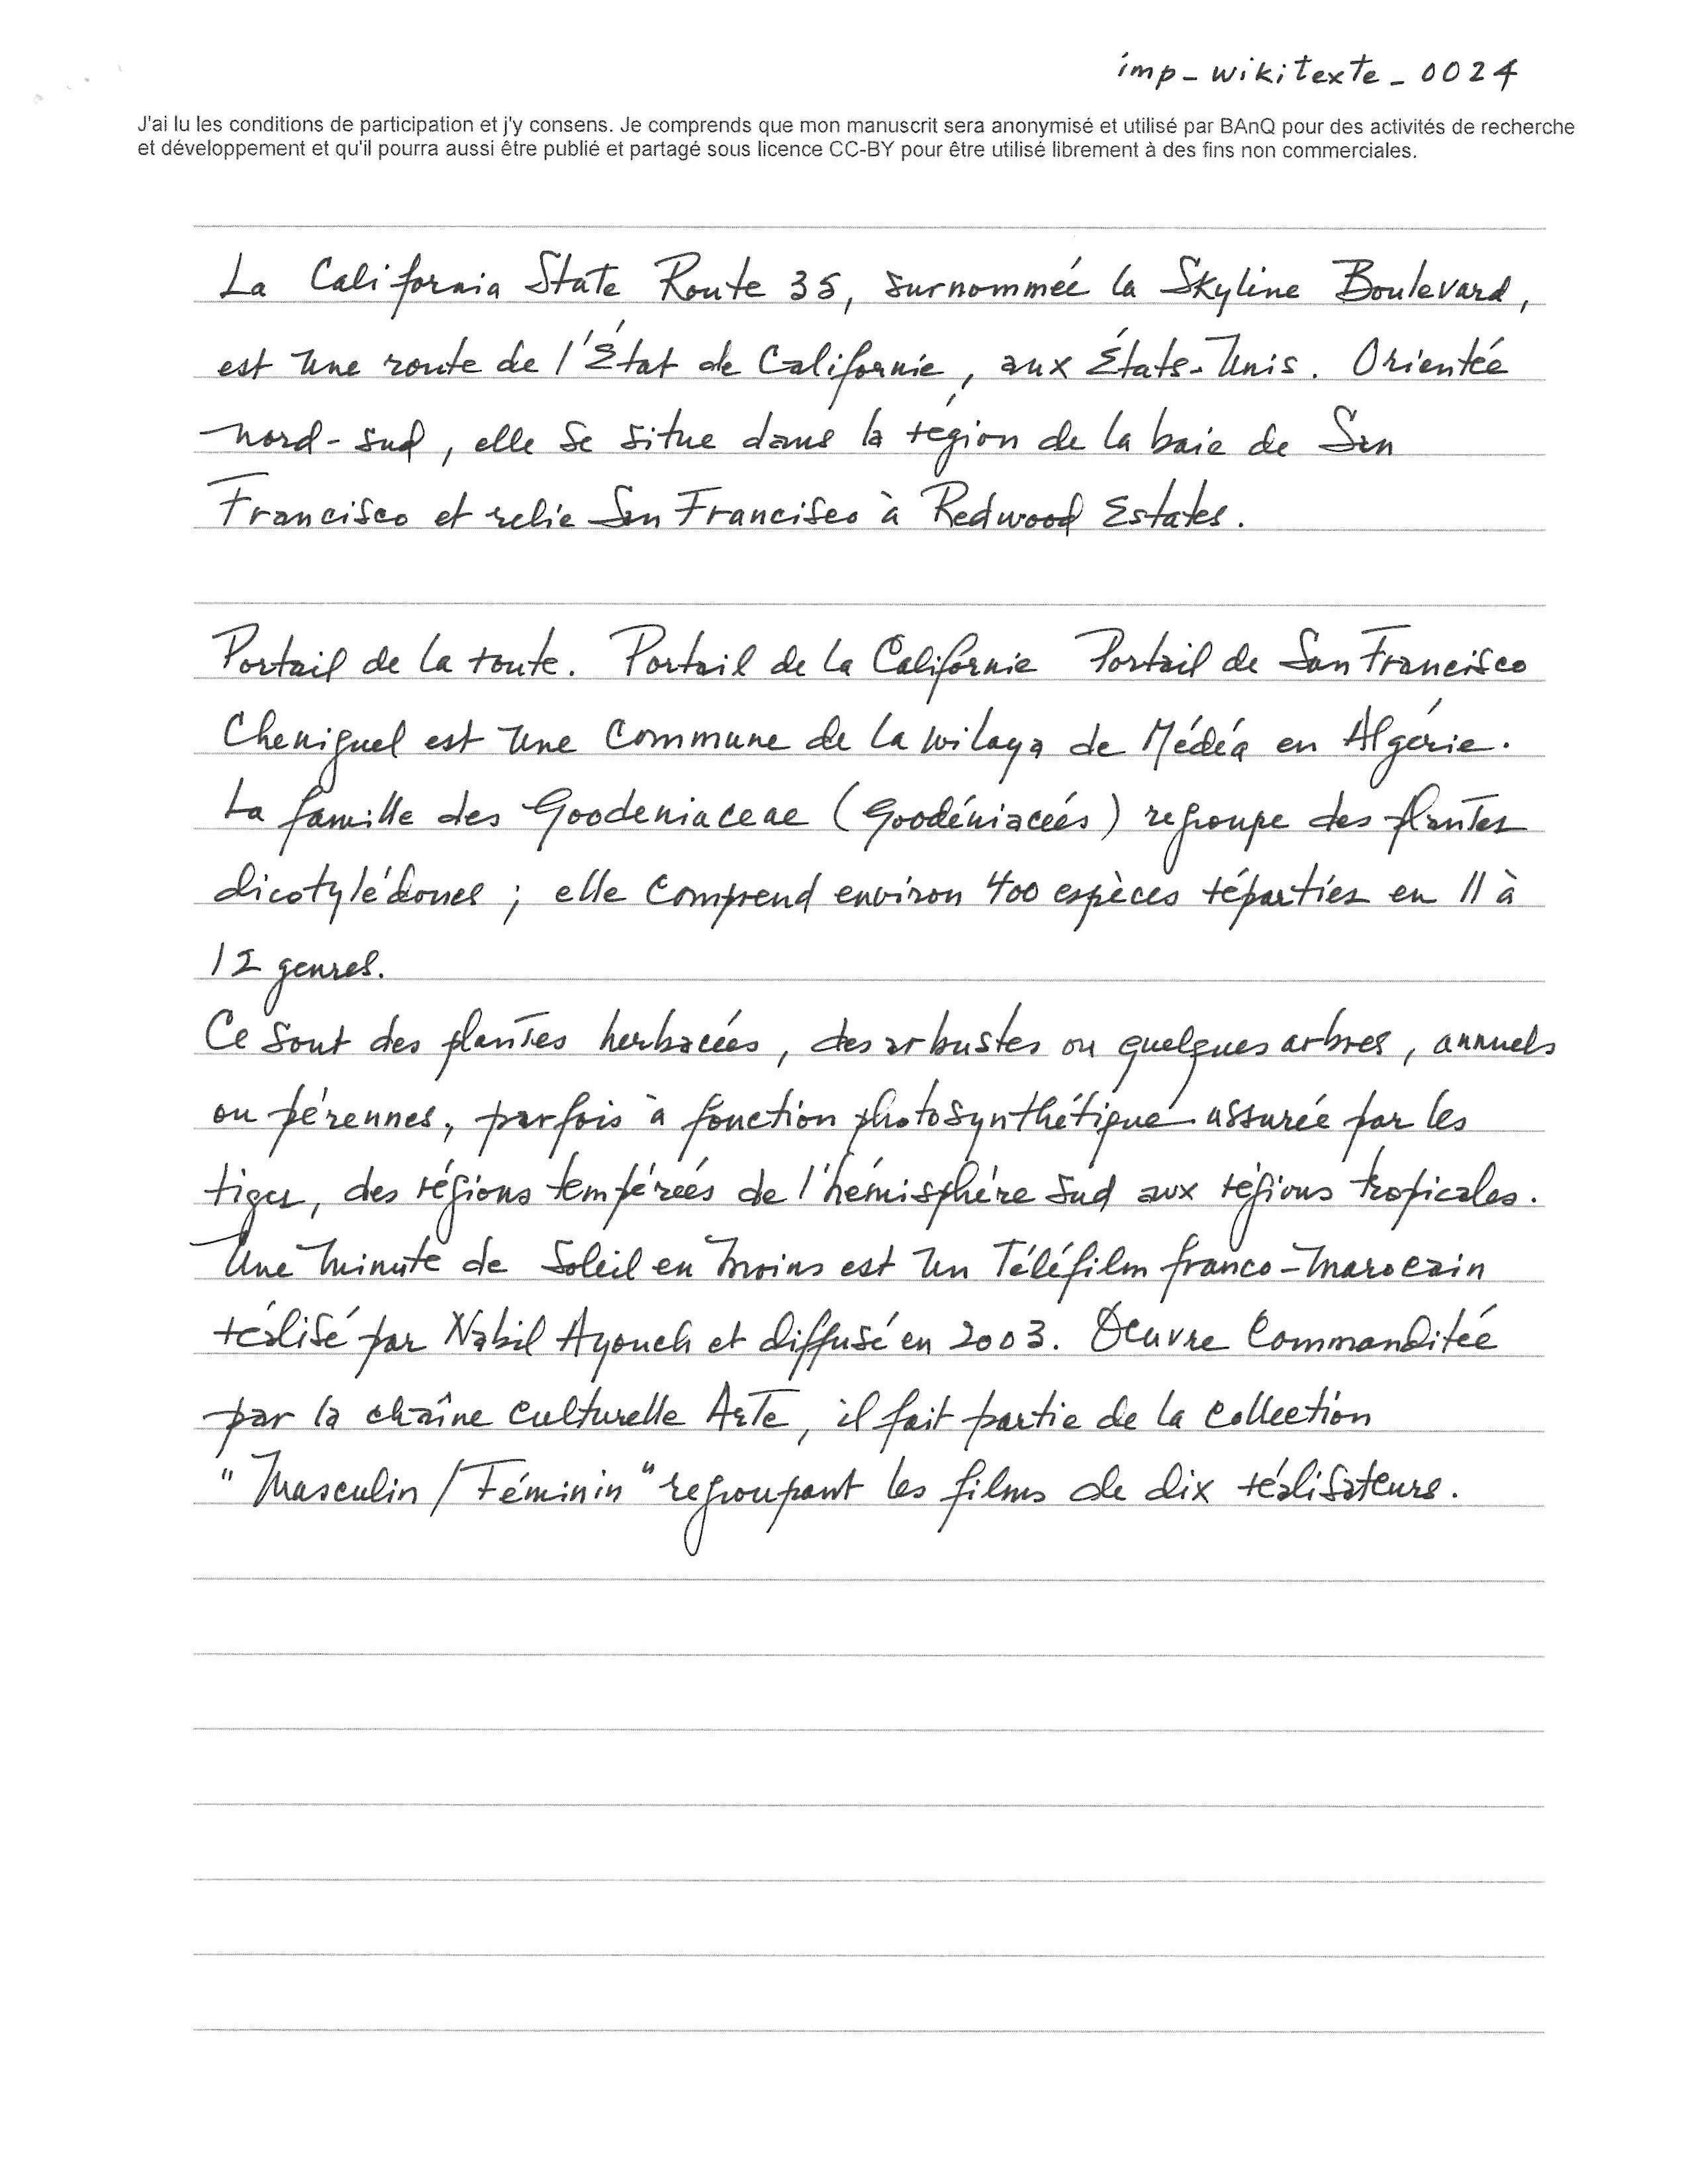 imp_wikitexte_0024
J'ai lu les conditions de participation et j'y consens. Je comprends que mon manuscrit sera anonymisé et utilisé par BAnQ pour des activités de recherche
et développement et qu'il pourra aussi être publié et partagé sous licence CC-BY pour être utilisé librement à des fins non commerciales.
La California State Route 35, surnommée la Skyline Boulevard,
est une route de l'État de Californie, aux États-Unis. Orientée
nord-sud, elle se situe dans la région de la baie de San
Francisco et relie San Francisco à Redwood Estates.
Portail de la route. Portail de la Californie Portail de San Francisco
Cheniguel est une commune de la wilaya de Médéa en Algérie.
La famille des Goodeniaceae (Goodéniacées) regroupe des plantes
dicotylédones ; elle comprend environ 400 espèces réparties en 11 à
12 genres.
Ce sont des plantes herbacées, des arbustes ou quelques arbres, annuels
ou pérennes, parfois à fonction photosynthétique assurée par les
tiges, des régions tempérées de l'hémisphère sud aux régions tropicales.
Une minute de soleil en moins est un téléfilm franco-marocain
réalisé par Nabil Ayouch et diffusé en 2003. Œuvre commanditée
par la chaîne culturelle Arte, il fait partie de la collection
"Masculin/Féminin" regroupant les films de dix réalisateurs.